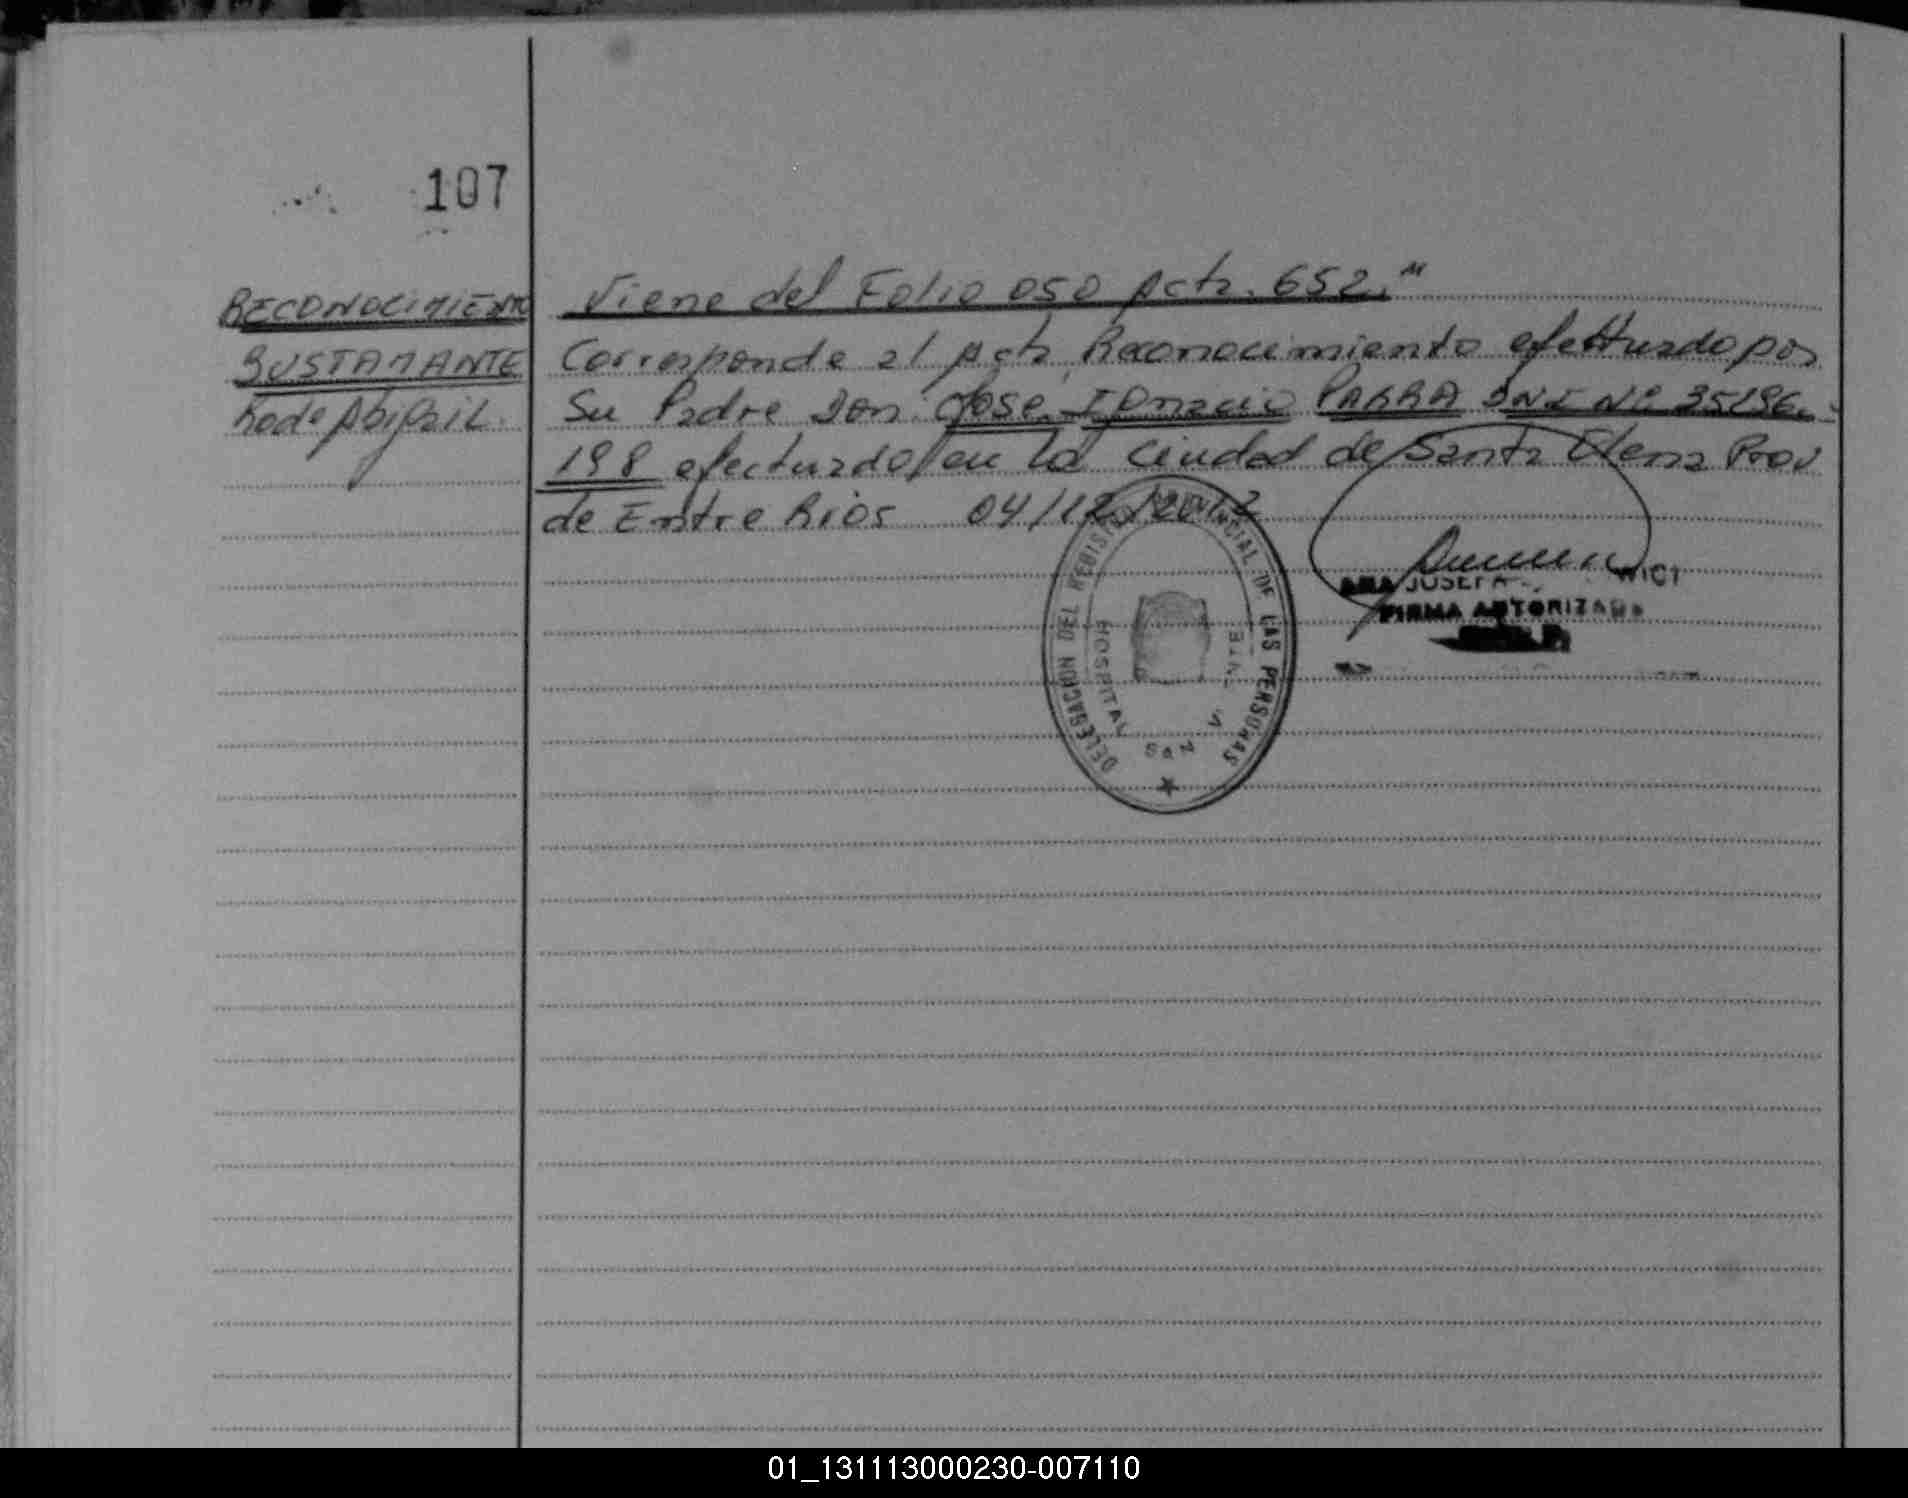 107
RECONOCIMIENTO
BUSTAMANTE
Abigail.
Viene del Folio 050 Acta. 652."
Corresponde al Acta Reconocimiento efettuado por
Su Padre Don José Ignacio PARRA DNI Nº 35196.
198 efectuado en la Ciudad de Santa Elena Prov
de Entre Rios 04/12/2012
DELEGACION DEL REGISTRO PROVINCIAL DE LAS PERSONAS
HOSPITAL SAN VICENTE
ANA JOSEFA
FIRMA AUTORIZADA
01_131113000230-007110